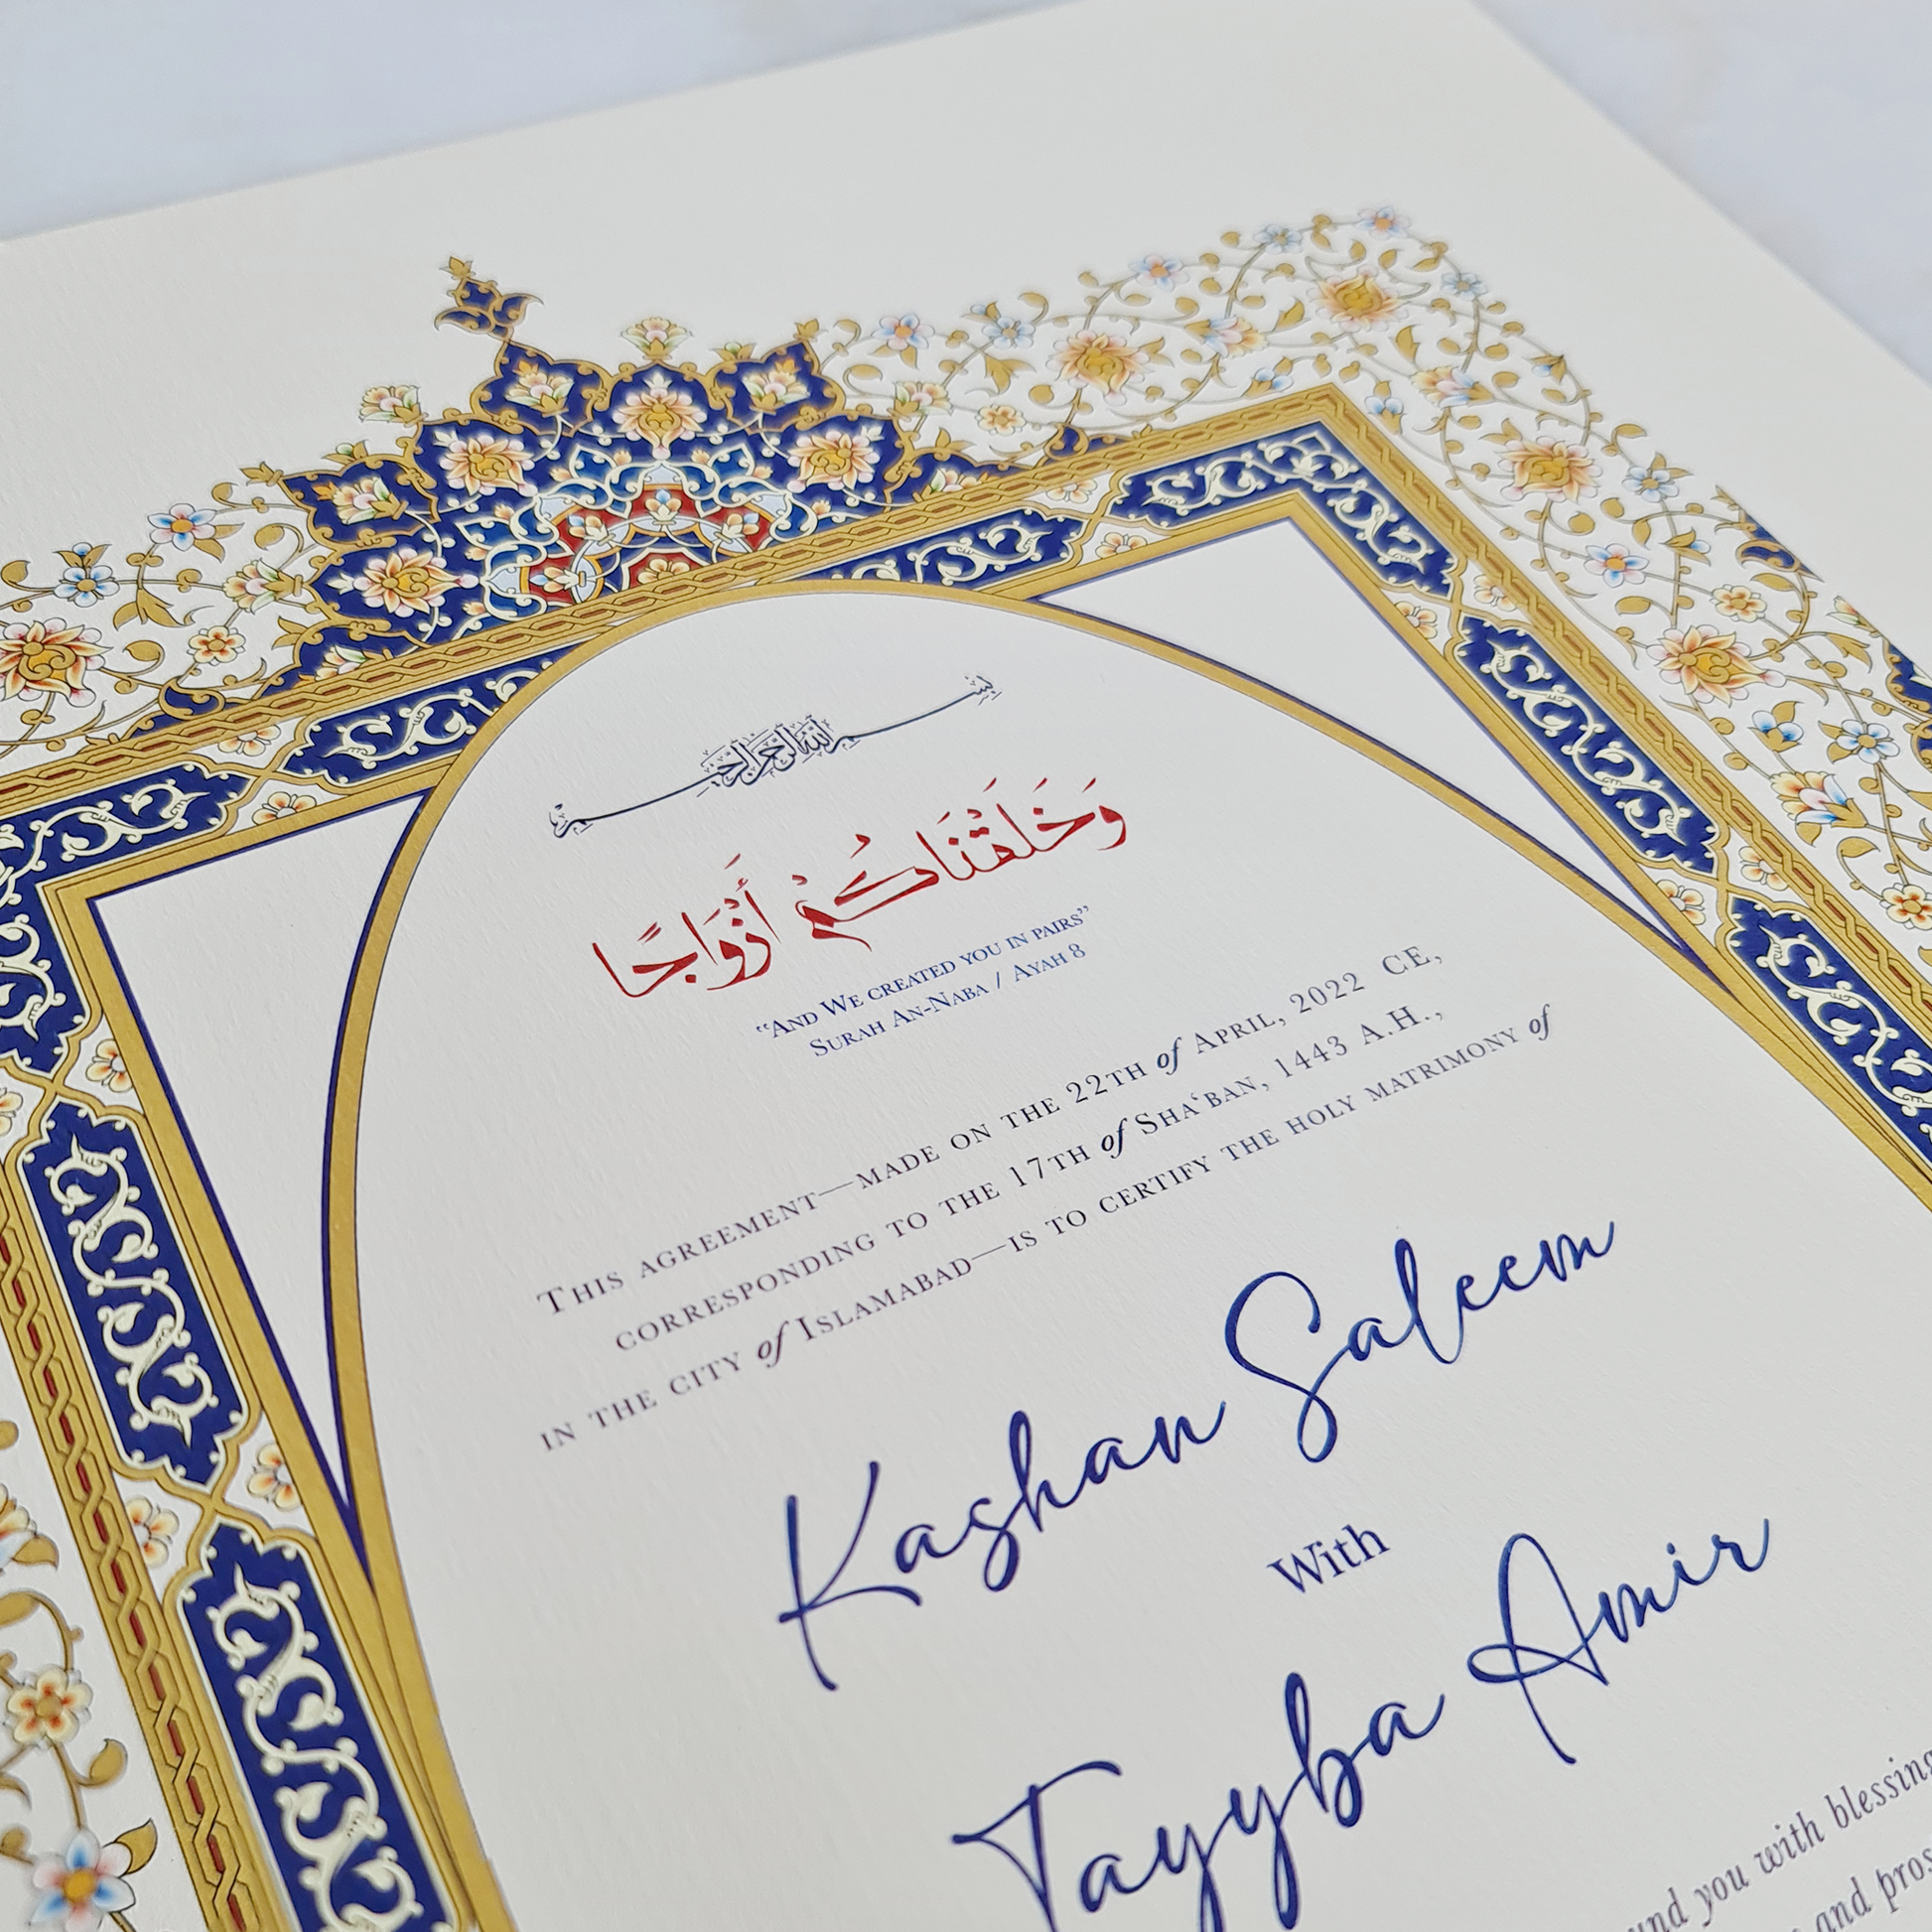 بسم الله الرحمن الرحيم
وَخَلَقْنَاكُمْ أَزْوَاجًا
“And We created you in pairs”
Surah An-Naba / Ayah 8
This agreement—made on the 22th of April, 2022 CE,
corresponding to the 17th of Sha‘ban, 1443 A.H.,
in the city of Islamabad—is to certify the holy matrimony of
Kashan Saleem
With
Tayyba Amir
you with blessing
and